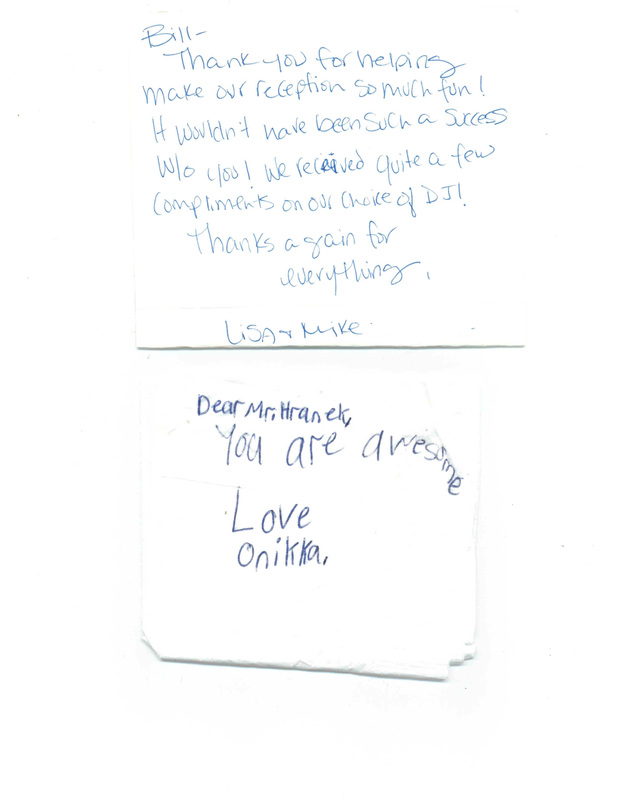 Bill-
Thank you for helping
make our reception so much fun!
It wouldn't have been such a success
w/o you! We received quite a few
compliments on our choice of DJ!
Thanks again for
everything.
Lisa + Mike
Dear Mr. Hranek,
You are awesome
Love
Onikka.